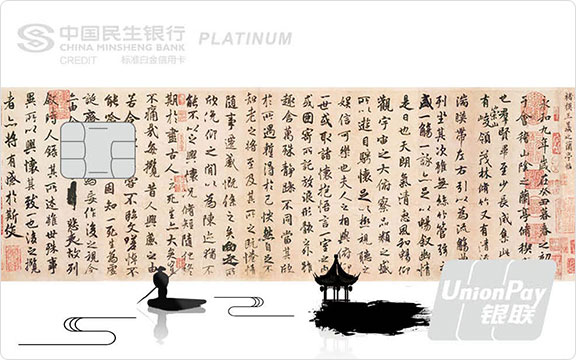 中国民生银行
CHINA MINSHENG BANK
CREDIT 标准白金信用卡
PLATINUM
褚摸王羲之蘭亭帖
永和九年歲在癸丑暮春之初
于會稽山陰之蘭亭脩禊
也群賢畢至少長咸集
有崇山峻領茂林脩竹又有清流
湍暎帶左右引以為流觴
列坐其次雖無絲竹管弦
盛一觴一詠亦足以暢敘
是日也天朗氣清惠風和暢仰
觀宇宙之大俯察品類之盛
所以遊目騁懷足以極視聽之
娛信可樂也夫人之相與俯仰
一世或取諸懷抱悟言一室之內
或因寄所託放浪形骸之外雖
趣舍萬殊靜躁不同當其欣
於所遇蹔得於己怏然自足不
知老之將至及其所之既惓情
隨事遷感慨係之矣向之所
欣俛仰之閒以為陳迹猶不
能不以之興懷況脩短隨化終
期於盡古人云死生亦大矣豈
不痛哉每攬昔人興感之由
若合 不臨文嗟悼不
能喻 固知一死生為虛
誕齊 為妄作後之視今
悲夫故列
敘時人錄其所述雖世殊事
異所以興懷其致一也後之攬
者亦將有感於斯文
UnionPay
银联